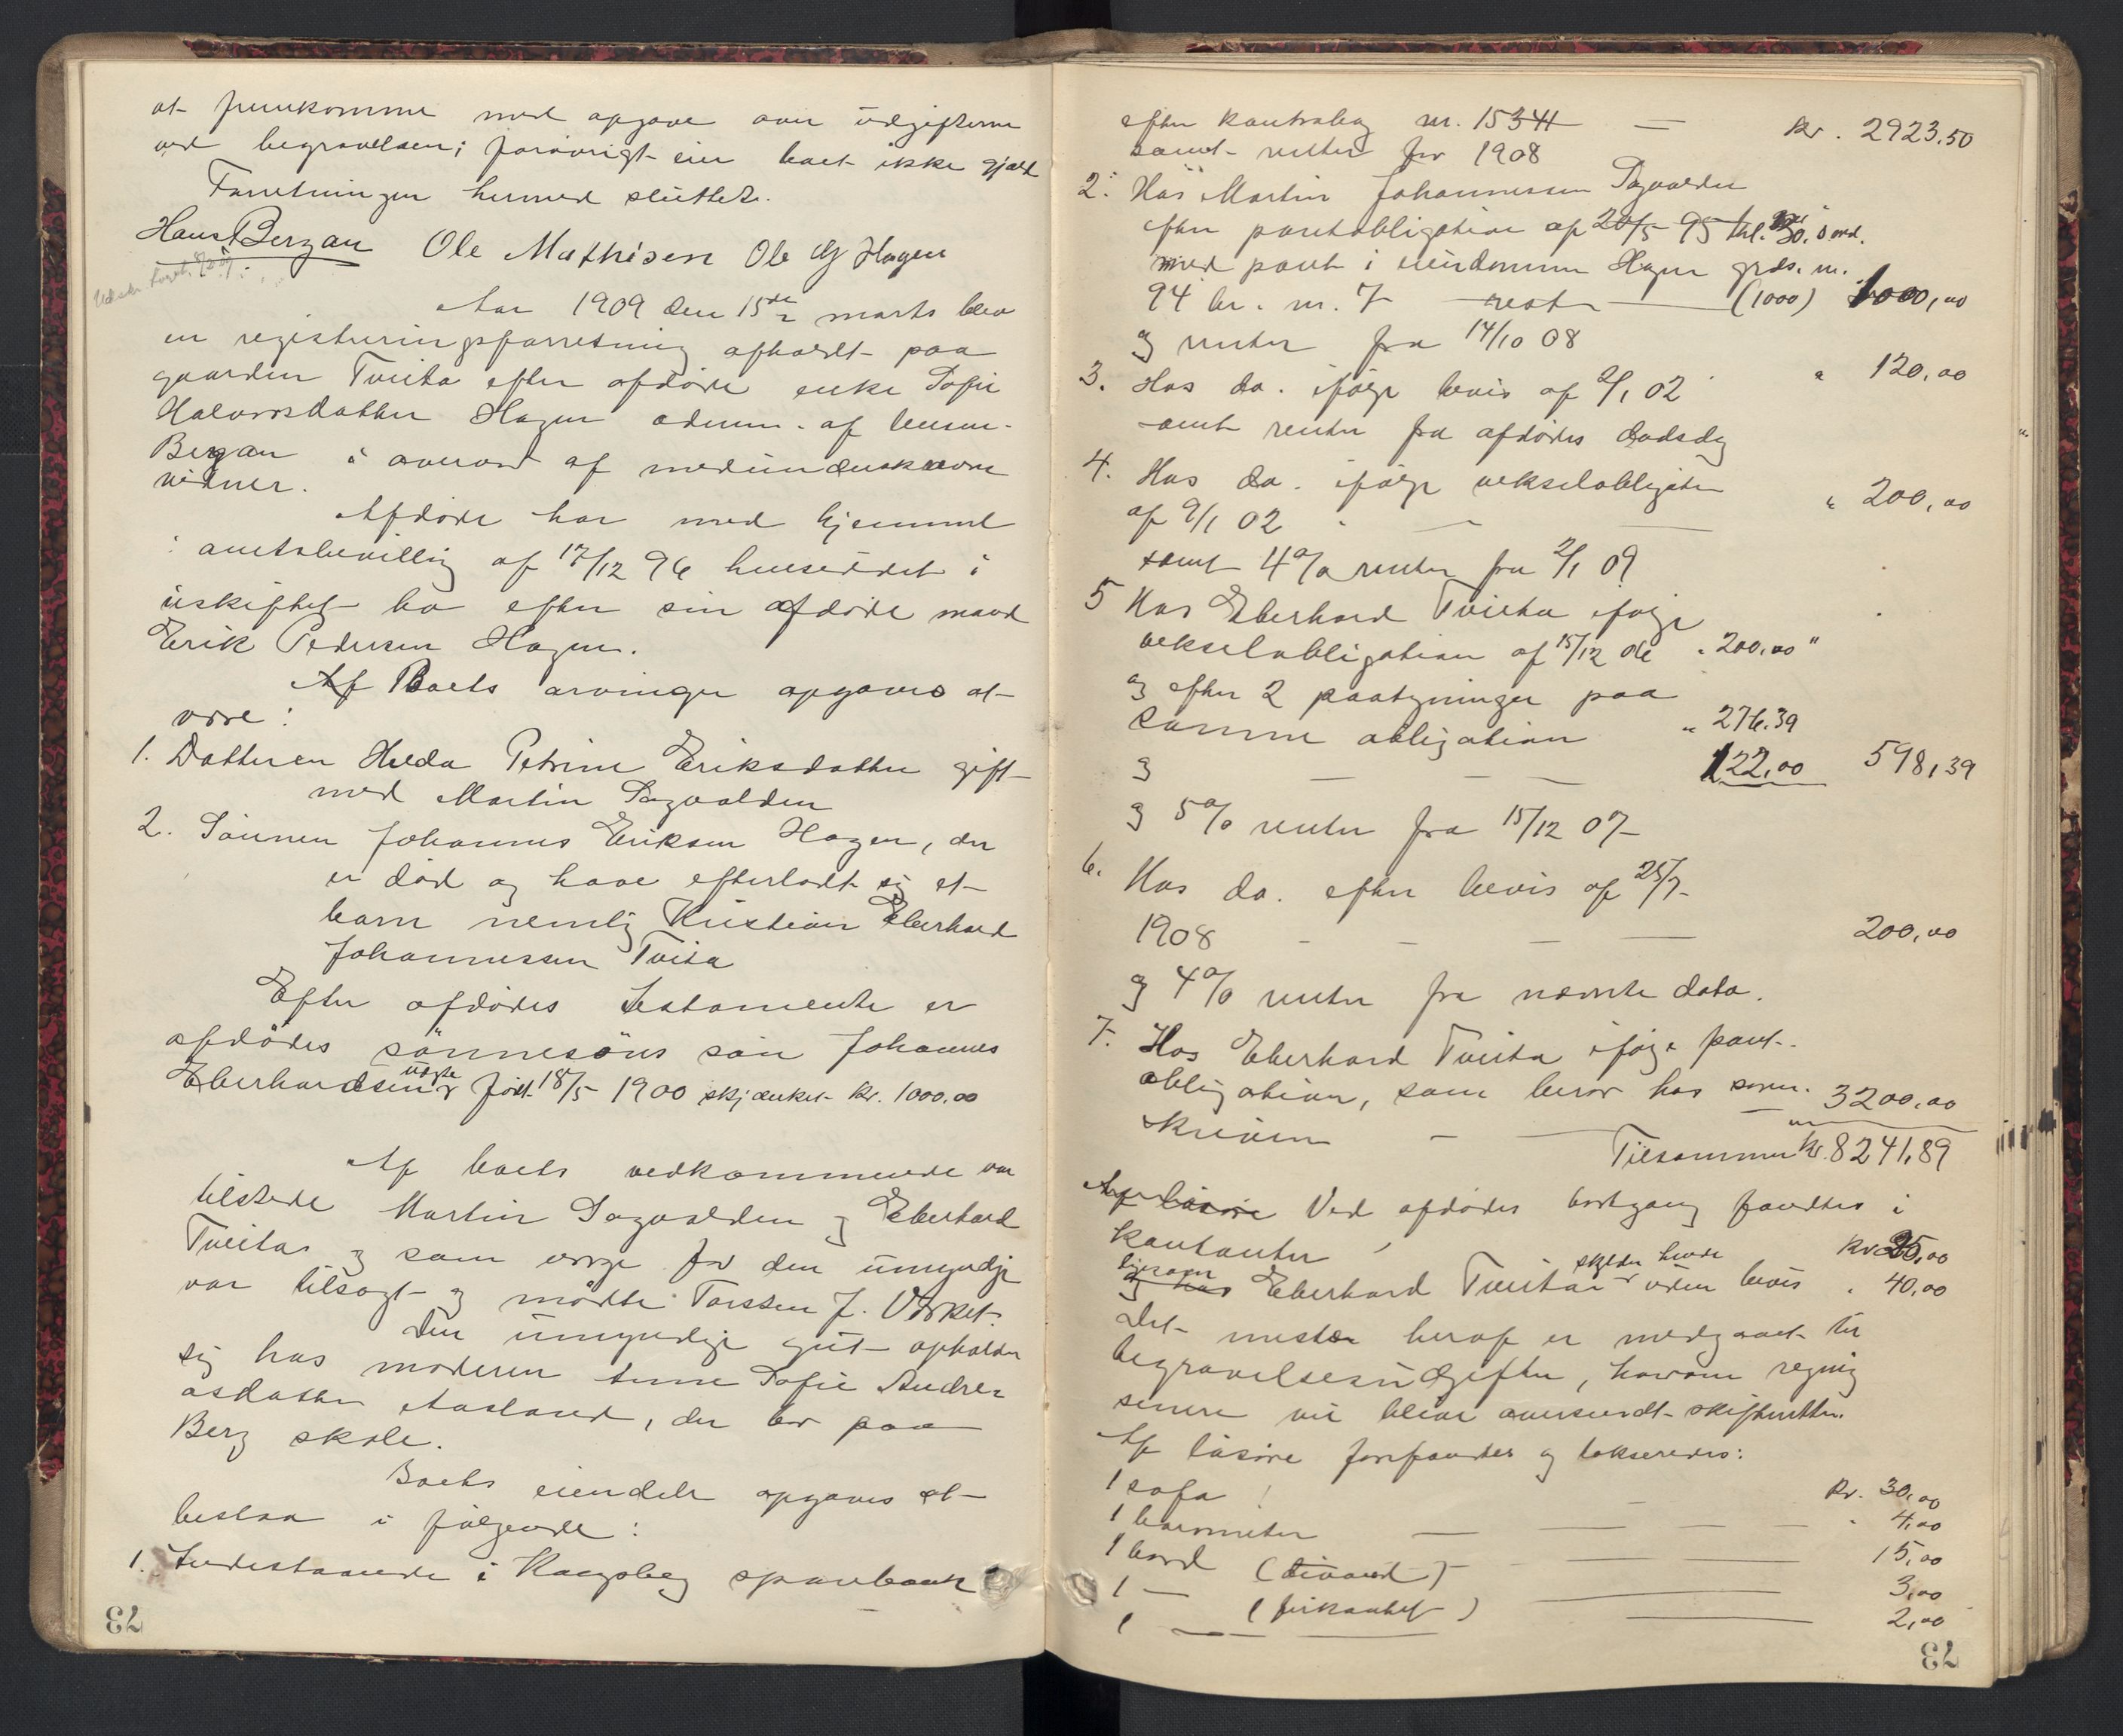 at fremkomme med opgave over udgifterne
ved begravelsen; forøvrigt eier boet ikke gjæld
Forretningen hermed sluttet.
Hans Bergan Ole Mathisen Ole Hagen
Aar 1909 den 15de marts blev
en registreringsforretning afholdt paa
gaarden Tveita efter afdøde enke Sofie
Halvorsdatter Hagen adm. af lensm.
Bergan i overvær af medunderskrevne
vidner.
Afdøde har med hjemmel
i amtsbevilling af 17/12 96 hensiddet i
uskiftet bo efter sin afdøde mand
Erik Pedersen Hagen.
Af Boets arvinger opgaves at
være:
1. Datteren Helda Petrine Eriksdatter gift
med Martin Sagvolden
2. Sønnen Johannes Eriksen Hagen, der
er død og have efterladt sig et
barn nemlig Kristian Eberhard
Johannessen Tveita
Efter afdødes testamente er
afdødes sønnesøns søn Johannes
Eberhardsen født 18/5 1900 skjænket kr. 1000.00
Af boets vedkommende var
tilstede Martin Sagvolden og Eberhard
Tveitas og som verge for den umyndige
var tilsagt og mødte Torsten J. Værket.
Den umyndige gut opholder
sig hos moderen Anne Sofie Andre=
asdatter Aasland, der bor paa
Berg skole.
Boets eiendele opgaves at
bestaa i følgende:
1. Indestaaende i Kongsberg sparebank
73
efter kontrabog nr. 15341 — kr. 2923.50
samt renter for 1908
2. Hos Martin Johannessen Sagvolden
efter pantobligation af 20/5 95
med pant i eiendommen Hagen grds. nr.
94 br. nr. 7 rest — (1000) 1000,00
og renter fra 14/10 08
3. Hos do. ifølge bevis af 2/1 02 " 120,00
samt renter fra afdødes dødsdag
4. Hos do. ifølge vekselobligation
af 9/1 02 — " 200,00
samt 4% renter fra 2/1 09
5 Hos Eberhard Tveita ifølge
vekselobligation af 15/12 06 " 200,00 "
og efter 2 paategninger paa
samme obligation " 276.39
og — 122,00 598,39
og 5% renter fra 15/12 07
6. Hos do. efter bevis af 25/7
1908 — 200,00
og 4% renter fra nævnte dato.
7. Hos Eberhard Tveita ifølge pant-
obligation, som beror hos soren-
skriveren — " 3200,00
Tilsammen kr. 8241,89
Af løsøre Ved afdødes bortgang fandtes i
kontanter kr 25,00
ligesom og hos Eberhard Tveitas skylder hende uden bevis " 40,00
Det meste heraf er medgaaet til
begravelsesudgifter, hvorom regning
senere vil blive oversendt skifteretten.
Af løsøre forefandtes og takseredes:
1 sofa — kr. 30,00
1 barometer — " 4,00
1 bord (divand) — 15,00
1 — (firkantet) — 3,00
1 — 2,00
73